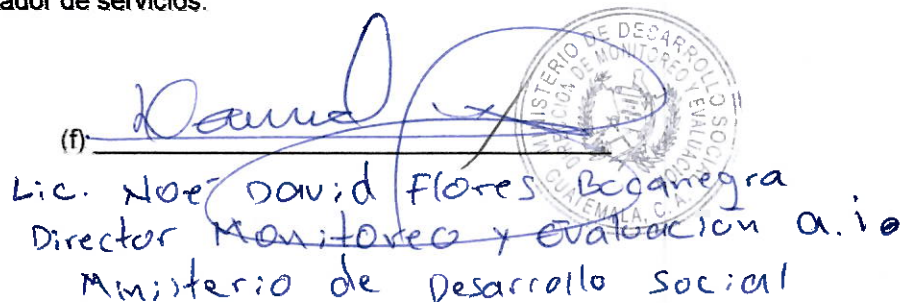 ador de servicios.
MINISTERIO DE DESARROLLO SOCIAL
DIRECCION DE MONITOREO Y EVALUACION
GUATEMALA, C.A.
(f)
Lic. Noé David Flores Bocanegra
Director Monitoreo y Evaluación a.i.
Ministerio de Desarrollo Social